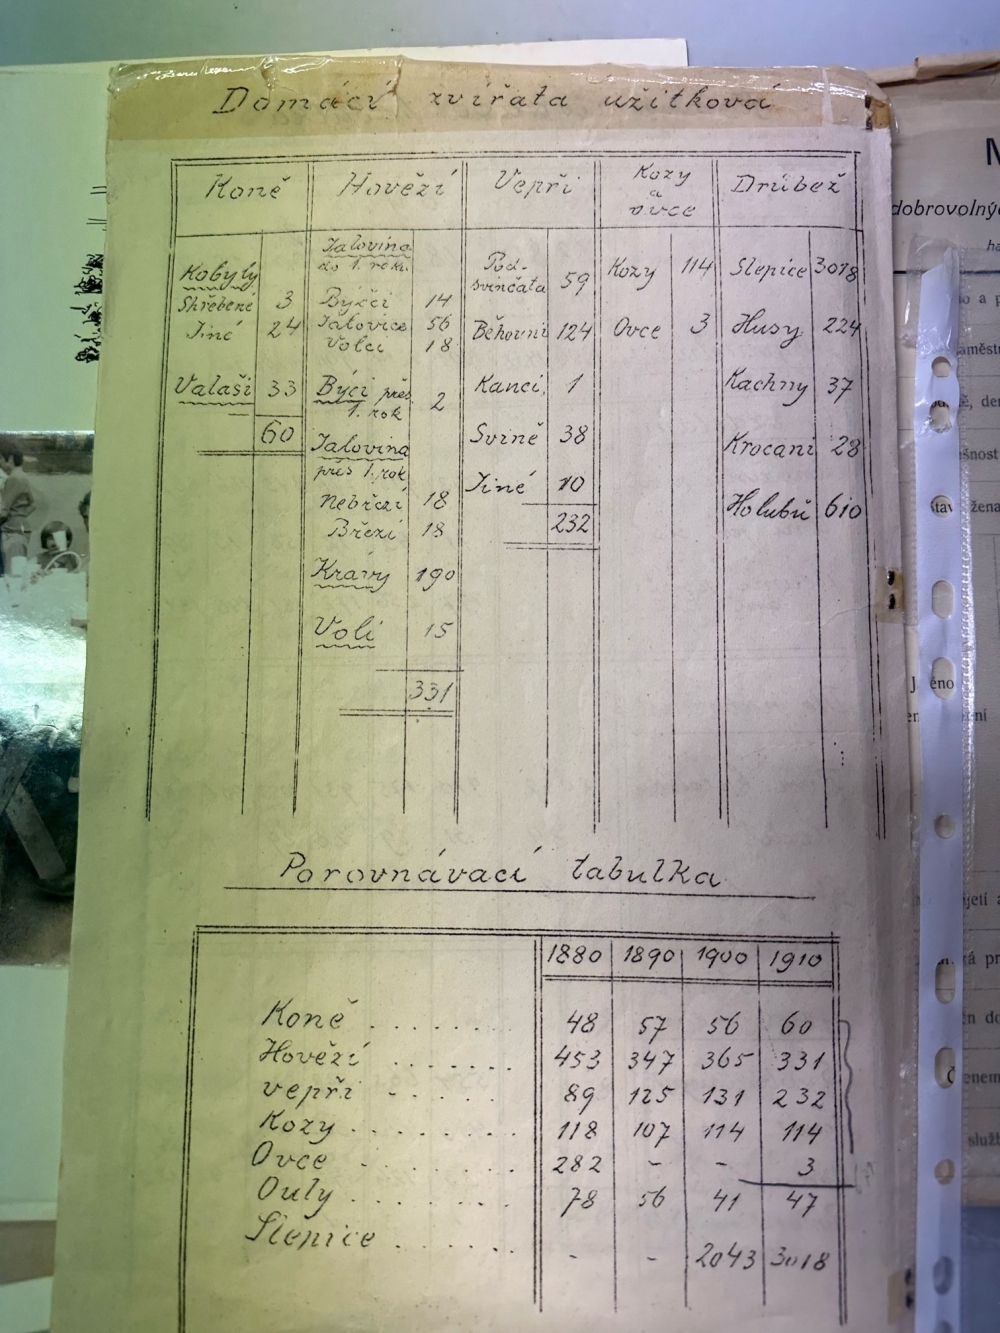 Domácí zvířata užitková
Koně Hovězí Vepři Kozy a ovce Drůbež
Kobyly
Shřebené 3
Jiné 24
Valaši 33
60
Jalovina
do 1. roku.
Býčci 14
Jalovice 56
Volci 18
Býci přes 2
1. rok
Jalovina
přes 1. rok
Nebřezí 18
Březí 18
Krávy 190
Voli 15
331
Pod-
svinčata 59
Běhouni 124
Kanci 1
Svině 38
Jiné 10
232
Kozy 114
Ovce 3
Slepice 3018
Husy 224
Kachny 37
Krocani 28
Holubů 610
Porovnávací tabulka
1880 1890 1900 1910
Koně 48 57 56 60
Hovězí 453 347 365 331
vepři 89 125 131 232
Kozy 118 107 114 114
Ovce 282 - - 3
Ouly 78 56 41 47
Slepice - - 2043 3018
dobrovolných